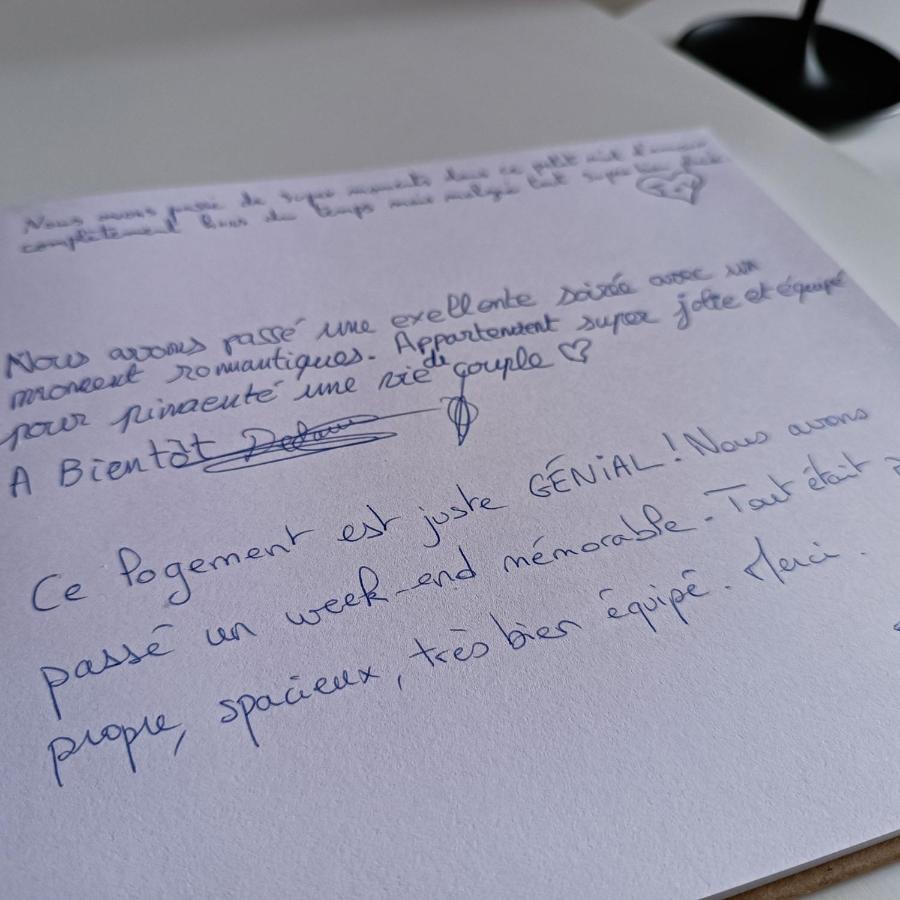 Nous avons passé de super moments dans ce petit nid d'amour
complètement hors du temps mais malgré tout super
Nous avons passé une exellente soirée avec un
moment romantiques. Appartement super jolie et équipé
pour pimenté une vie de couple ♡
A Bientôt
Ce logement est juste GÉNIAL ! Nous avons
passé un week-end mémorable. Tout était
propre, spacieux, très bien équipé. Merci.